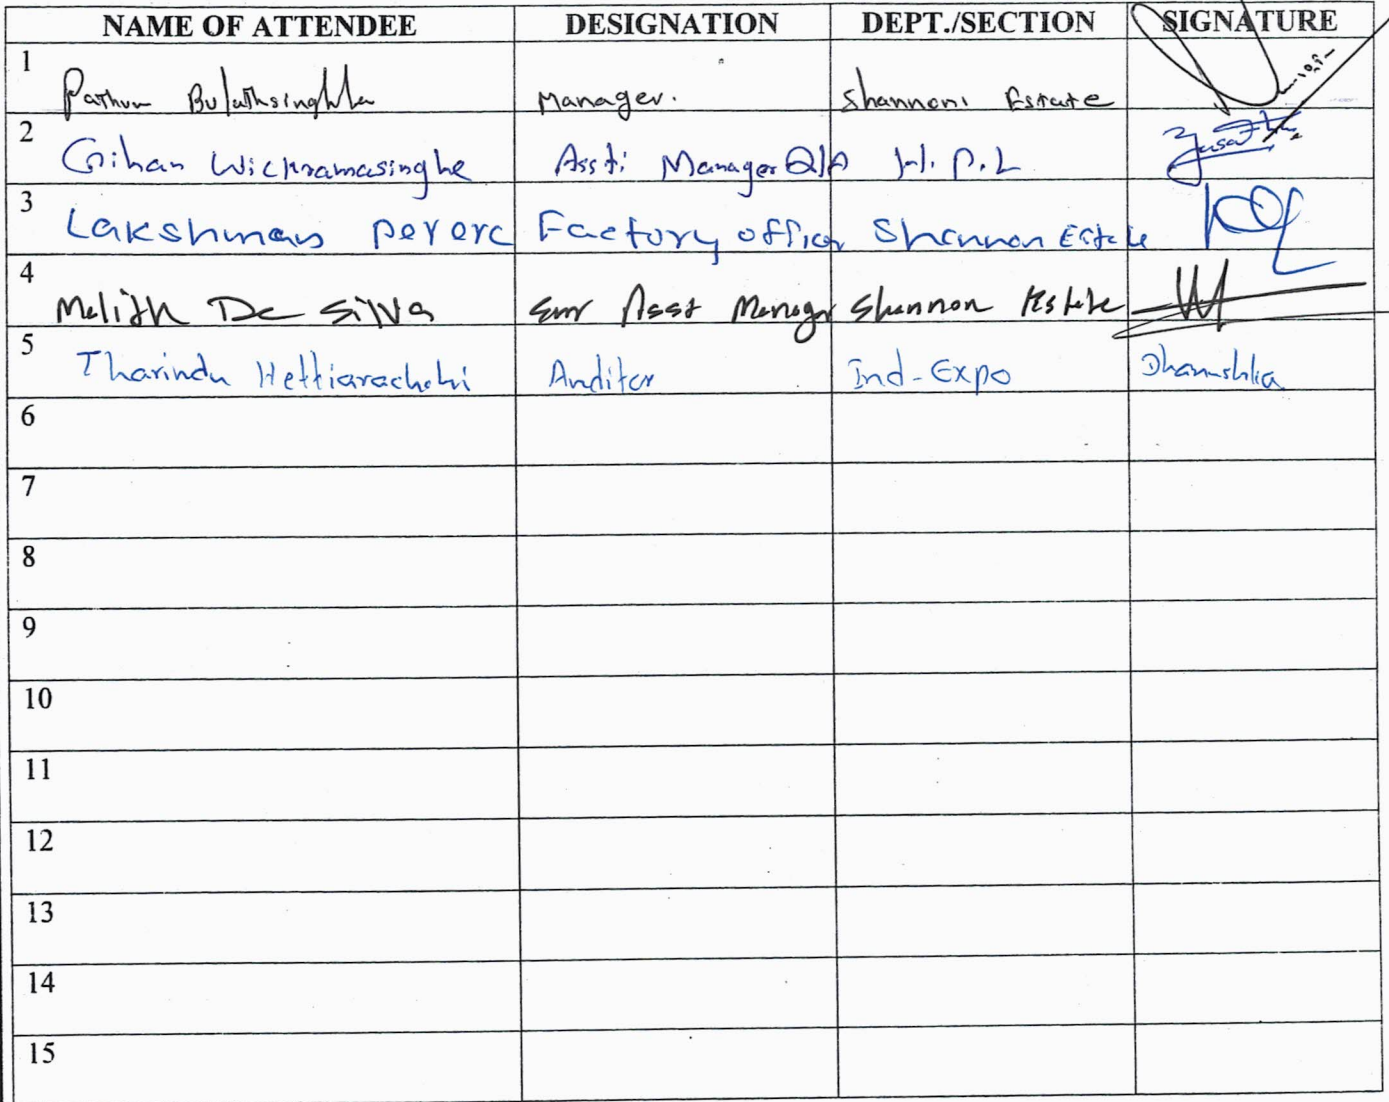 NAME OF ATTENDEE DESIGNATION DEPT./SECTION SIGNATURE
1 Pathum Bulathsinghla Manager. Shannon Estate
2 Gihan Wickramasinghe Asst: Manager Q/A H.P.L
3 Lakshman perera Factory officer Shannon Estate
4 Malith De Silva Snr Asst Manager Shannon Estate
5 Tharindu Hettiarachchi Auditor Ind-Expo Dhanushka
6
7
8
9
10
11
12
13
14
15